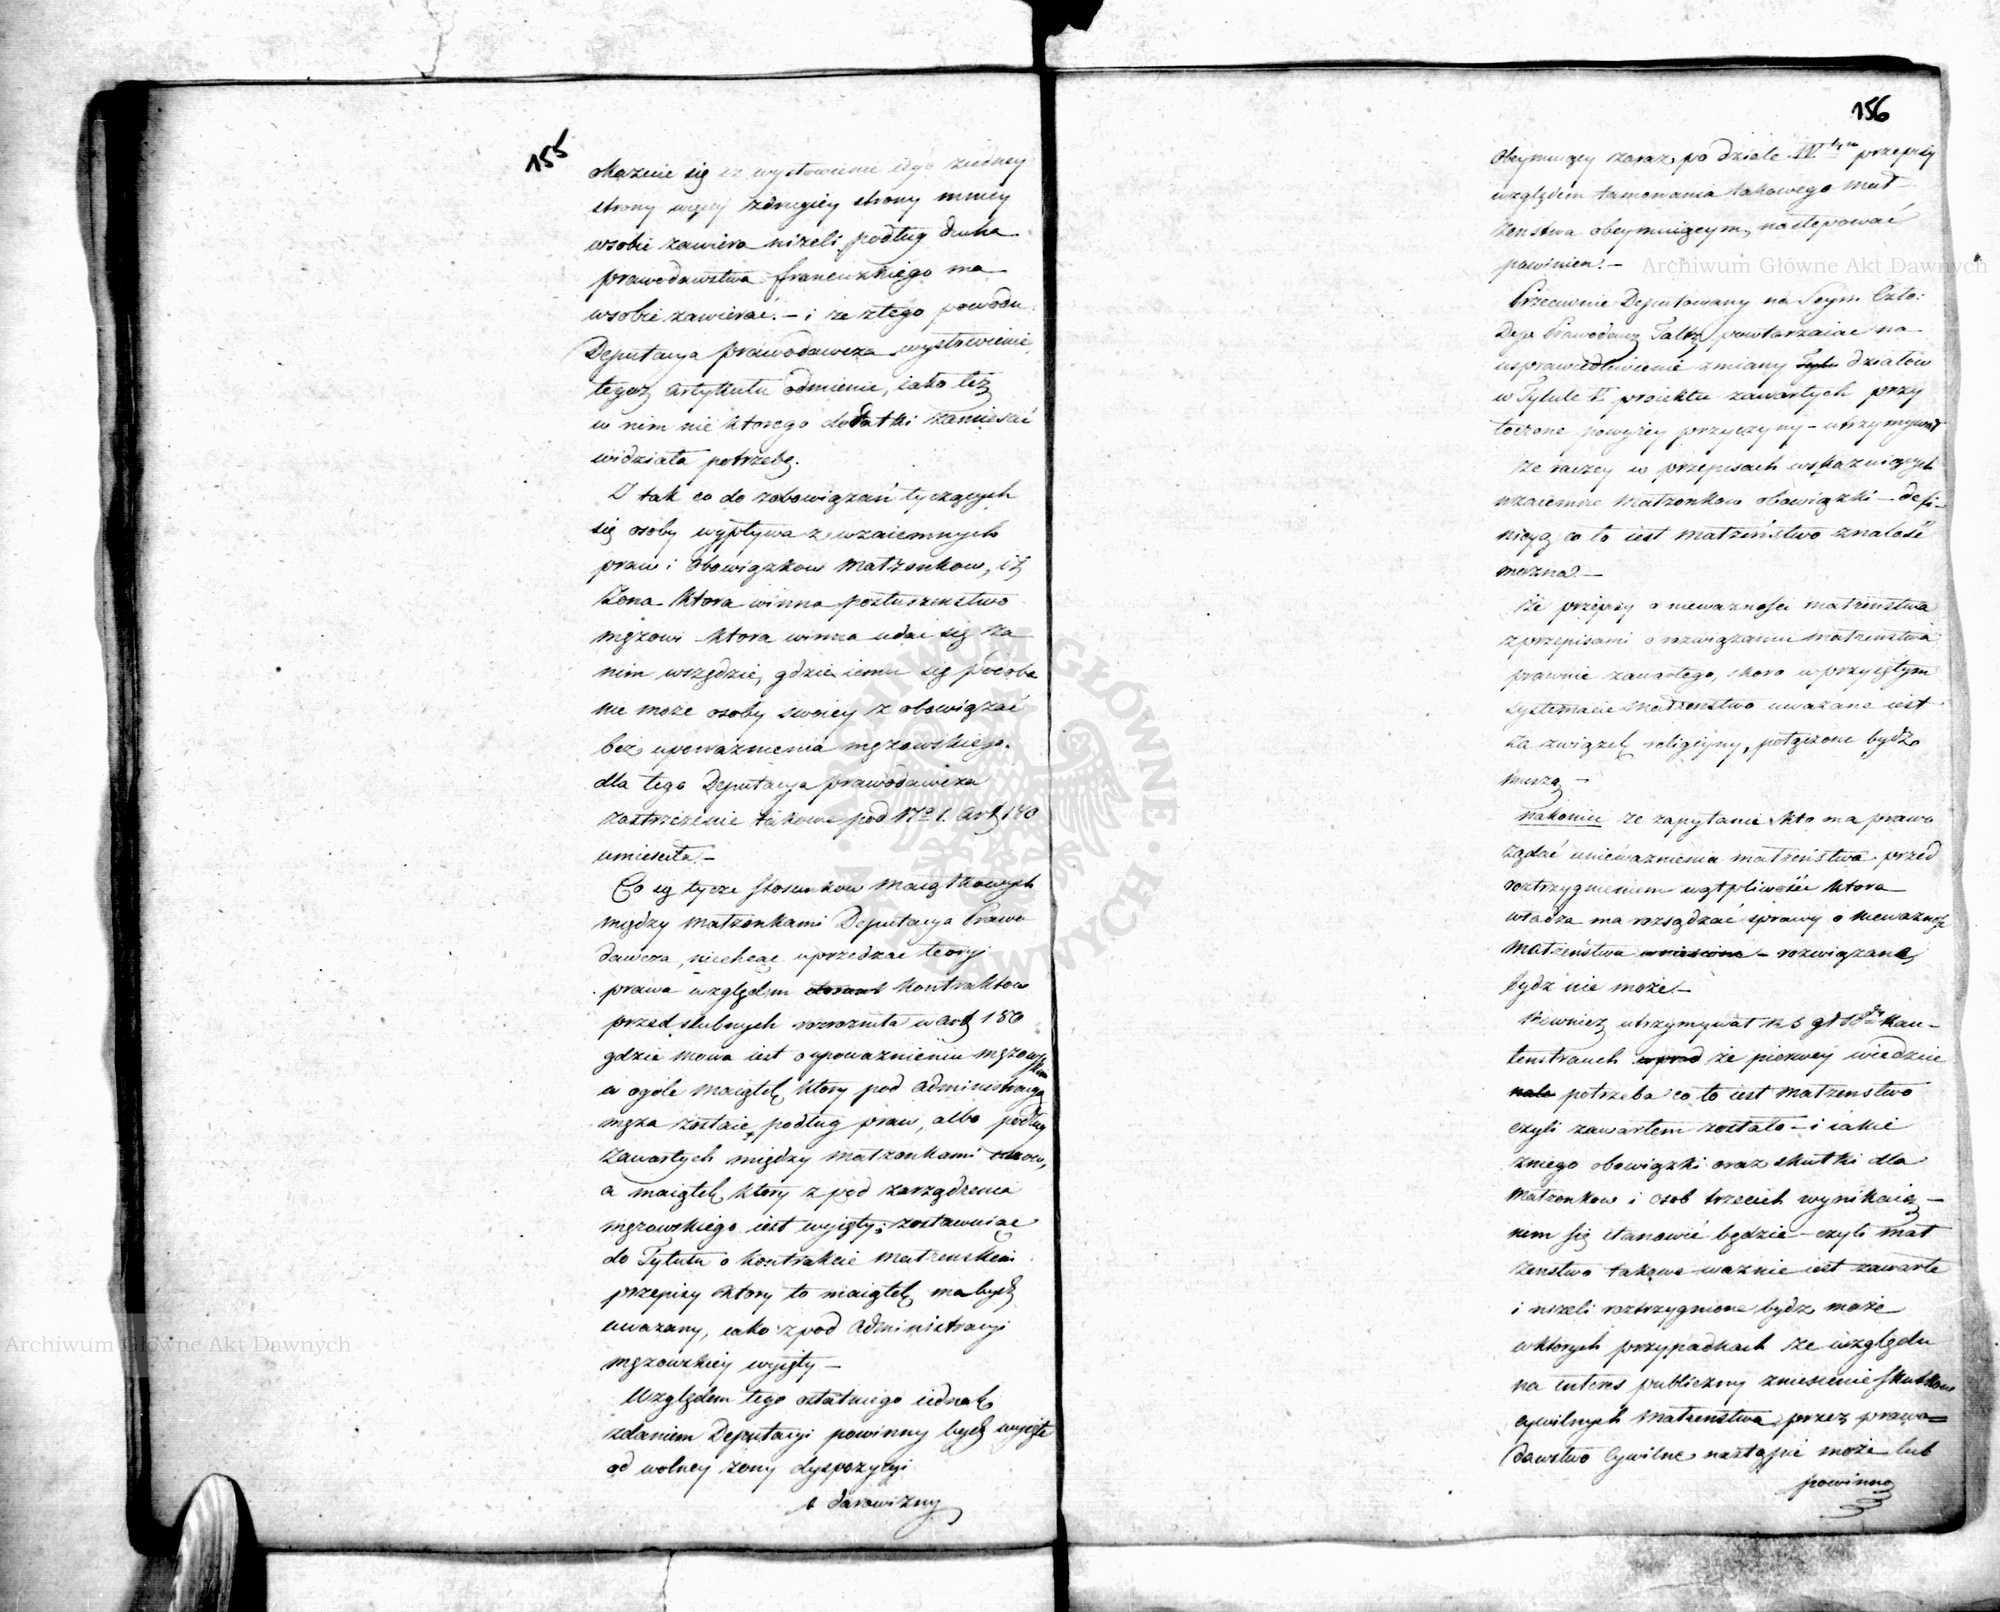 155
okazuie się że wystowienie iego ziedney
strony więcy zdrugiey strony mniey
wsobie zawiera niżeli podług ducha
prawodawstwa francuzkiego ma
wsobie zawierać. – i że ztego powodu
Deputacya prawodawcza wystowienie
tegoż artykułu odmienie, iako też
w nim nie ktorego dodatki zamieścić
widziała potrzebę.
I tak co do zobowiązań tyczących
się osoby wypływa z wzaiemnych
praw i obowiązkow Małżonkow, iż
Żona ktora winna posłuszenstwo
mężowi ktora winna udać się za
nim wszędzie, gdzie iemu się podoba
nie może osoby swoiey z obowiązać
bez upoważnienia mężowskiego.
dla tego Deputacya prawodawcza
zastrzeżenie takowe pod Nº 1. Art 180
umieściła –
Co się tycze stosunkow Maiątkowych
między Małżonkami Deputacya Prawo
dawcza, niechcąc uprzedzać teoryi
prawa względem kontraktow
przedslubnych rozrożniła w Art 180
gdzie mowa iest o upoważnieniu mężow
skim
w ogole Maiątek ktory pod administracyą
męża zostaie podług praw, albo podług
zawartych między Małżonkami
a maiątek ktory z pod zarządzenia
mężowskiego iest wyięty; zostawuiąc
do Tytułu o kontrakcie Małżenskim
przepisy ktory to maiątek ma bydź
uważany, iako z pod Administracyi
mężowskiey wyięty –
Względem tego ostatniego iednak
zdaniem Deputacyi powinny bydź wyięte
od wolney żony dyspozycyi
darowizny
156
obeymuiący zaraz po dziale IV przepisy
względem tamowania takowego Mał–
żenstwa obeymuiącym, następować
powinien. –
Przeciwnie Deputowany na Seym Czło:
Dep. Prawodawcz powtarzaiąc na
usprawiedliwienie zmiany działow
w Tytule V. proiektu zawartych przy
toczone powyżey przyczyny – utrzymywał
że raczey w przepisach wskazuiących
wzaiemne Małżonkow obowiązki – defi–
nicyą co to iest Małżeństwo znaleść
można. –
Że przepisy o nieważności małżenstwa
z przepisami o rozwiązaniu małżenstwa
prawnie zawartego, skoro w przyiętym
systemacie Małżenstwo uważane iest
za związek religiyny, połączone bydź
muszą –
nakoniec że zapytanie kto ma prawo
żądać unieważnienia małżeństwa przed
roztrzygnieniem wątpliwości ktora
władza ma rozsądzać sprawy o nieważność
Małżeństwa – rozwiązane
bydź nie może. –
Rownież utrzymywał
że pierwey wiedzieć
potrzeba co to iest Małżenstwo
czyli zawartem zostało – i iakie
zniego obowiązki oraz skutki dla
Małżonkow i osob trzecich wynikaią –
nim się stanowić będzie – czyli mał
żenstwo takowe ważnie iest zawarte
i niżeli roztrzygnione bydź może
wktorych przypadkach że względu
na interes publiczny zniesienie skutkow
cywilnych Małżenstwa przez prawo=
dawstwo Cywilne nastąpić może lub
powinno
Archiwum Główne Akt Dawnych
Archiwum Główne Akt Dawnych
ARCHIWUM GŁÓWNE AKT DAWNYCH